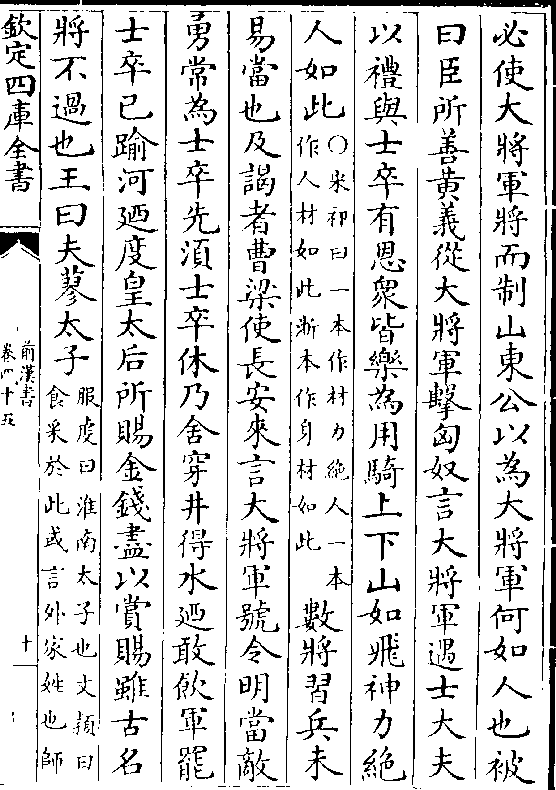 必使大將軍將而制山東公以為大將軍何如人也被
曰臣所善黄義從大將軍擊匈奴言大將軍遇士大夫
以禮與士卒有恩衆皆樂為用騎上下山如飛神力絶
人如此○宋祁曰一本作材力絶人一本作人材如此浙本作身材如此數將習兵未
易當也及謁者曹梁使長安來言大將軍號令明當敵
勇常為士卒先須士卒休乃舍穿井得水廼敢飲軍罷
士卒已踰河廼度皇太后所賜金錢盡以賞賜雖古名
將不過也王曰夫蓼太子服虔曰淮南太子也文頴曰食采於此或言外家姓也師
欽定四庫全書
前漢書
卷四十五
十